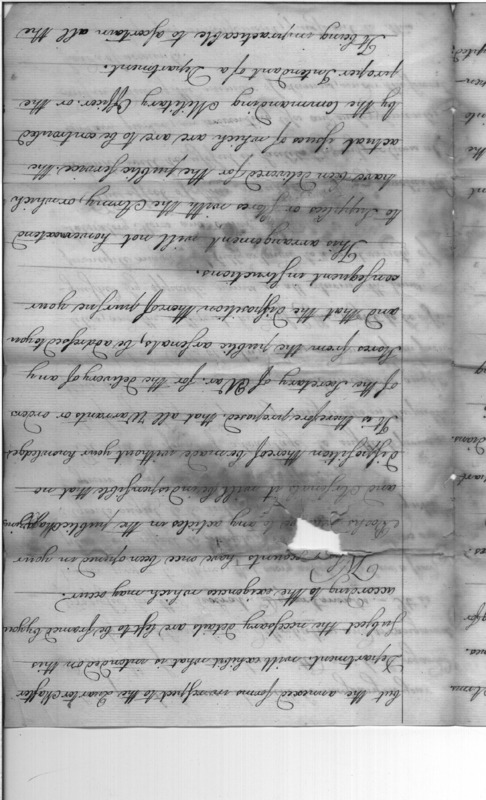 but the annexed forms in respect to the Quarter Master
Department will exhibit what is intended on this
subject the necessary details are left to be framed by you
according to the exigences which may occur.
When accounts have once been opened in your
Books to any articles in the public Magazines
and Arsenals it will be indispensible that no
disposition thereof be made without your knowledge.
It is therefore proposed that all Warrants or orders
of the Secretary of War for the delivery of any
Stores from the public arsenals, be addressed to you
and that the disposition thereof pursue your
consequent instructions.
This arrangement will not however extend
to Supplies or Stores with the Army, or which
have been delivered for the public service, the
actual issues of which are to be controuled
by the Commanding Military Officer or the
proper Intendant of a Department.
It being impracticable to ascertain all the